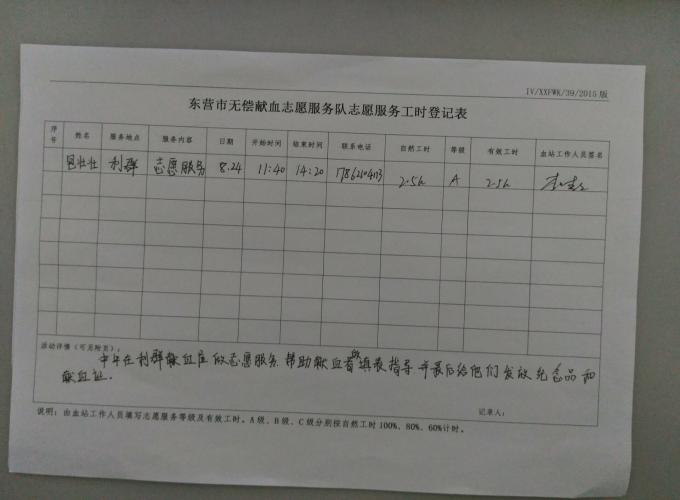 IV/XXFWK/39/2015版
东营市无偿献血志愿服务队志愿服务工时登记表
序号 姓名 服务地点 服务内容 日期 开始时间 结束时间 联系电话 自然工时 等级 有效工时 血站工作人员签名
利群 志愿服务 8.24 11:40 14:20 2.5h A 2.5h
活动详情（可另附页）：
中午在利群献血屋做志愿服务 帮助献血者做填表指导 并最后给他们发放纪念品和
献血证.
记录人：
说明：由血站工作人员填写志愿服务等级及有效工时。A级、B级、C级分别按自然工时100%、80%、60%计时。